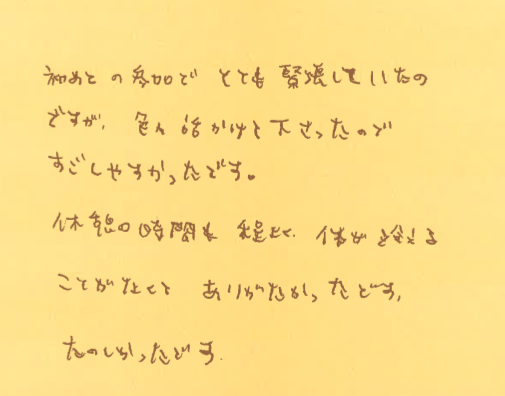 初めての参加で とても 緊張していたの
ですが、色々 話かけて下さったので
すごしやすかったです。
休憩の時間も 程よく、体が冷える
ことがなくて ありがたかったです。
たのしかったです.